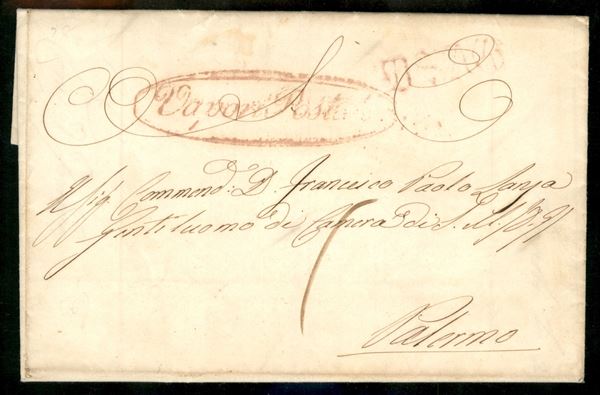 Vapori Postali
Al Sig. Commend: D. Francesco Paolo
Gentiluomo di Camera di S. M.
Palermo